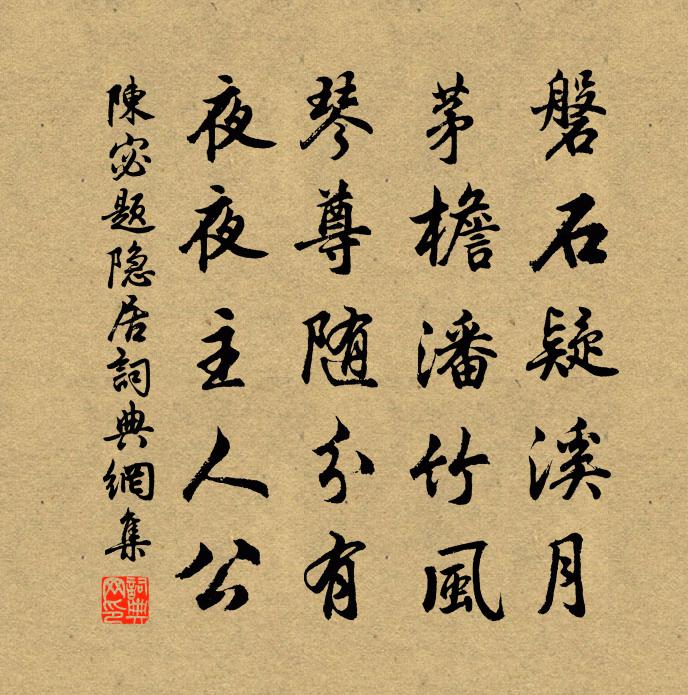 磐石疑溪月
茅檐潘竹風
琴尊随分有
夜夜主人公
陳宓题隐居詞典網集
詞典網印